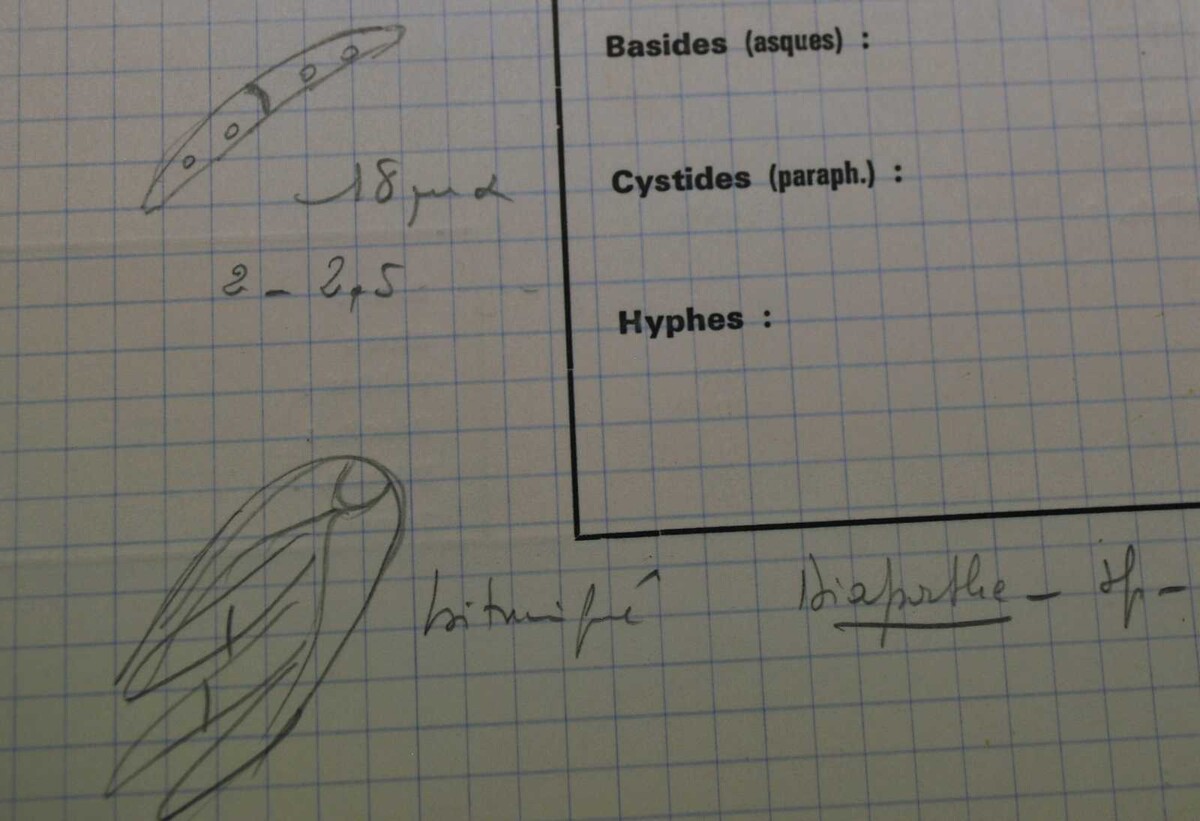 Basides (asques) :
Cystides (paraph.) :
18 µm x
2 - 2,5
Hyphes :
bituniqué
Diaporthe - sp -